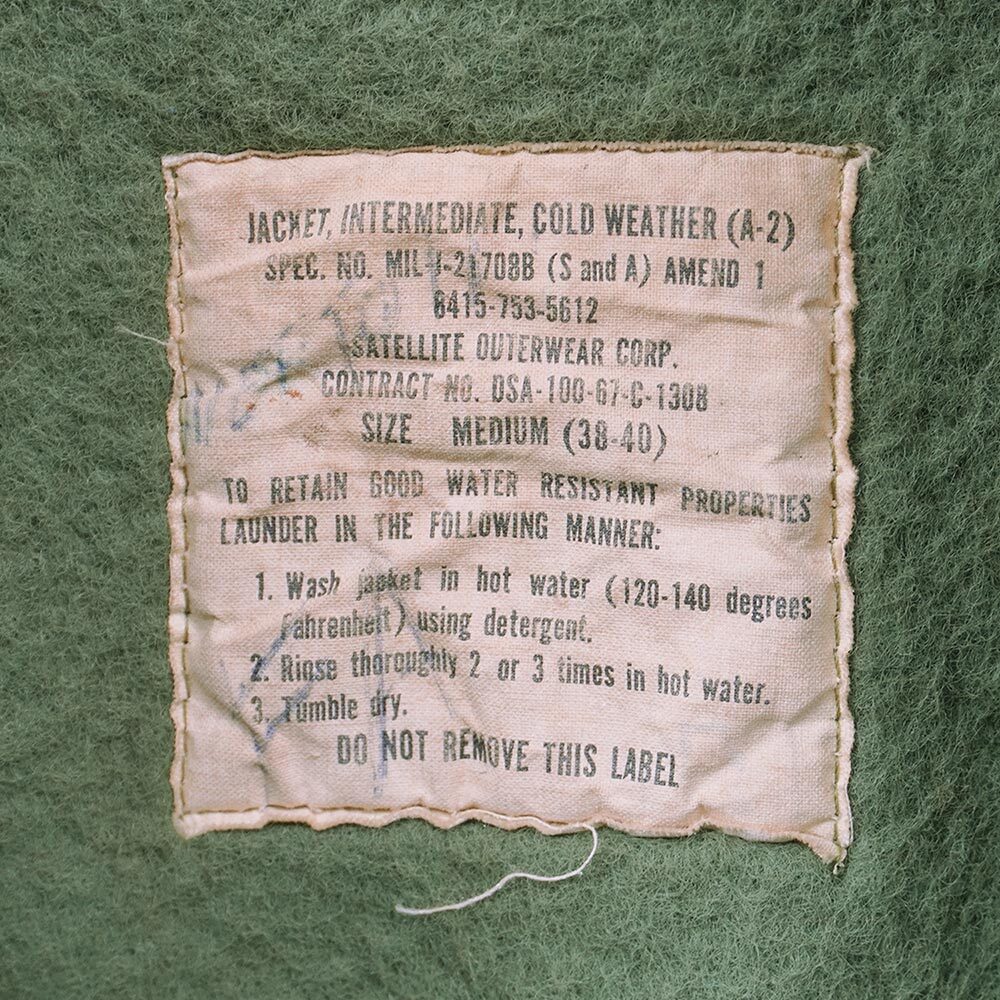 JACKET, INTERMEDIATE, COLD WEATHER (A-2)
SPEC. NO. MIL-J-21708B (S and A) AMEND 1
8415-753-5612
SATELLITE OUTERWEAR CORP.
CONTRACT NO. DSA-100-67-C-1308
SIZE MEDIUM (38-40)
TO RETAIN GOOD WATER RESISTANT PROPERTIES
LAUNDER IN THE FOLLOWING MANNER:
1. Wash jacket in hot water (120-140 degrees
Fahrenheit) using detergent.
2. Rinse thoroughly 2 or 3 times in hot water.
3. Tumble dry.
DO NOT REMOVE THIS LABEL